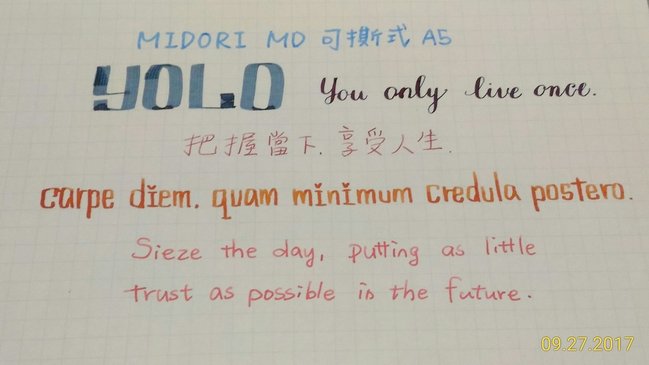 MIDORI MD 可撕式 A5
YOLO You only live once.
把握當下. 享受人生.
carpe diem. quam minimum credula postero.
Sieze the day, putting as little
trust as possible in the future.
09.27.2017